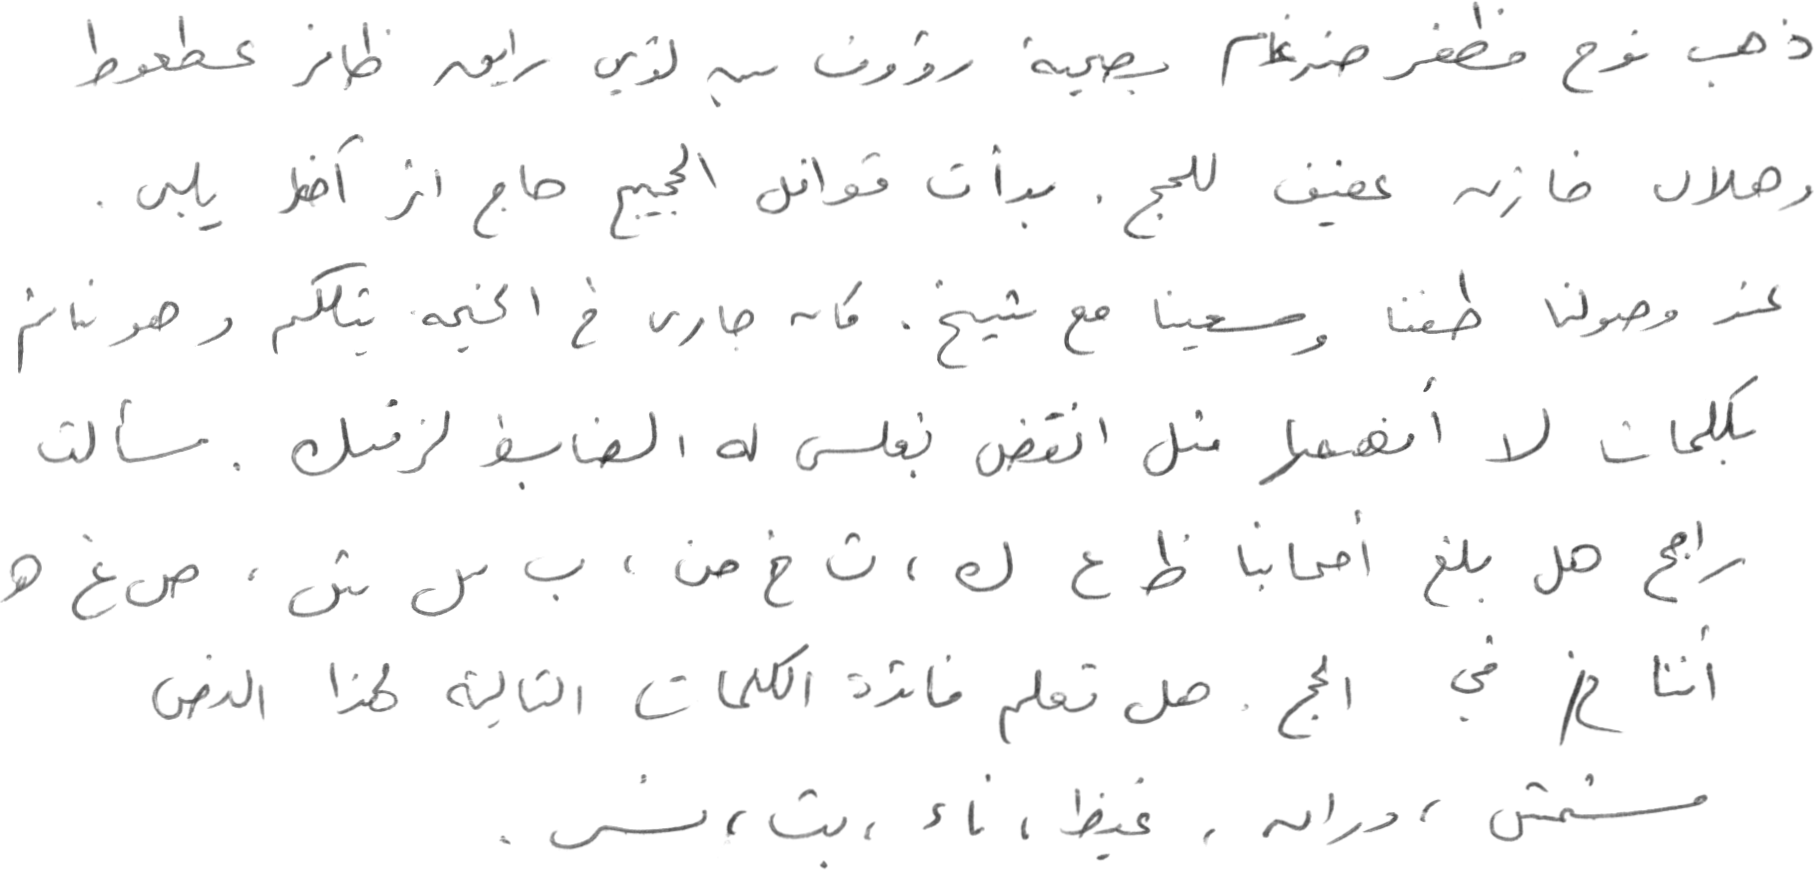 ذهب نوح مظفر ضرغام بصحبة رؤوف بن لؤي رايق ظافر عطعوط
وهلال خازن عفيف للحج . بدأت قوافل الحجيج حاج اثر آخر يلبى .
عند وصولنا طفنا وسعينا مع شيخ . كان جارى في الخيمه يتكلم وهو نائم
بكلمات لا أفهمها مثل انقض بغلس له الضابط لزقك . سألت
راجح هل بلغ أصحابنا ظ ع ك ، ث خ ض ، ب س ش ، ص غ ه
أننا في الحج . هل تعلم فائدة الكلمات التالية لهذا النص
مشمش ، دران ، غيظ ، ناء ، بث ، نس .